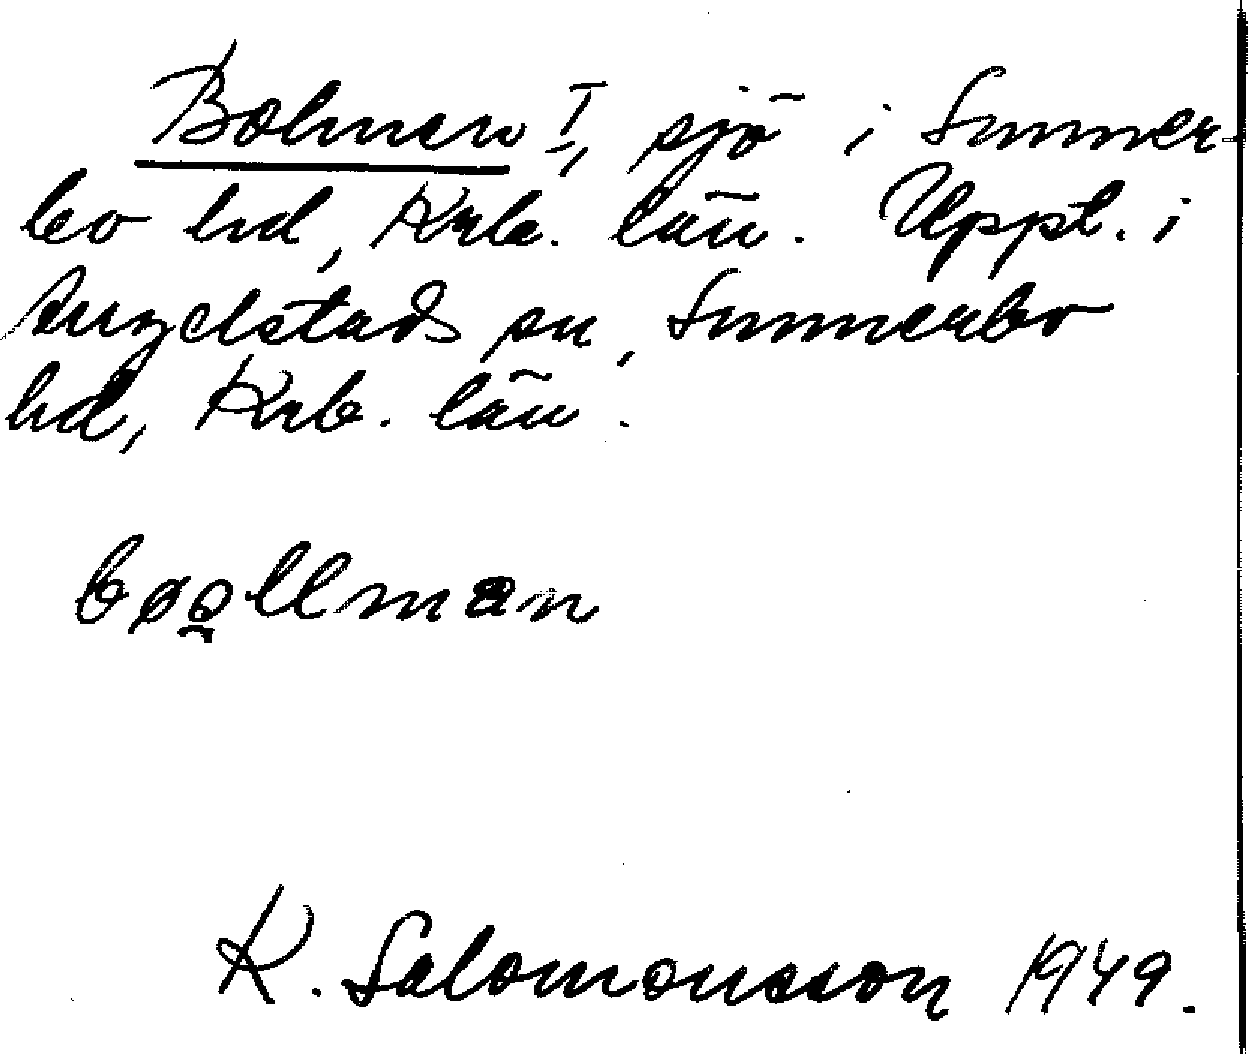 Bolmen I, sjö i Sunner-
bo hd, Krb. län. Uppt. i
Angelstads sn, Sunnerbo
hd, Krb. län.
K. Salomonsson 1949.